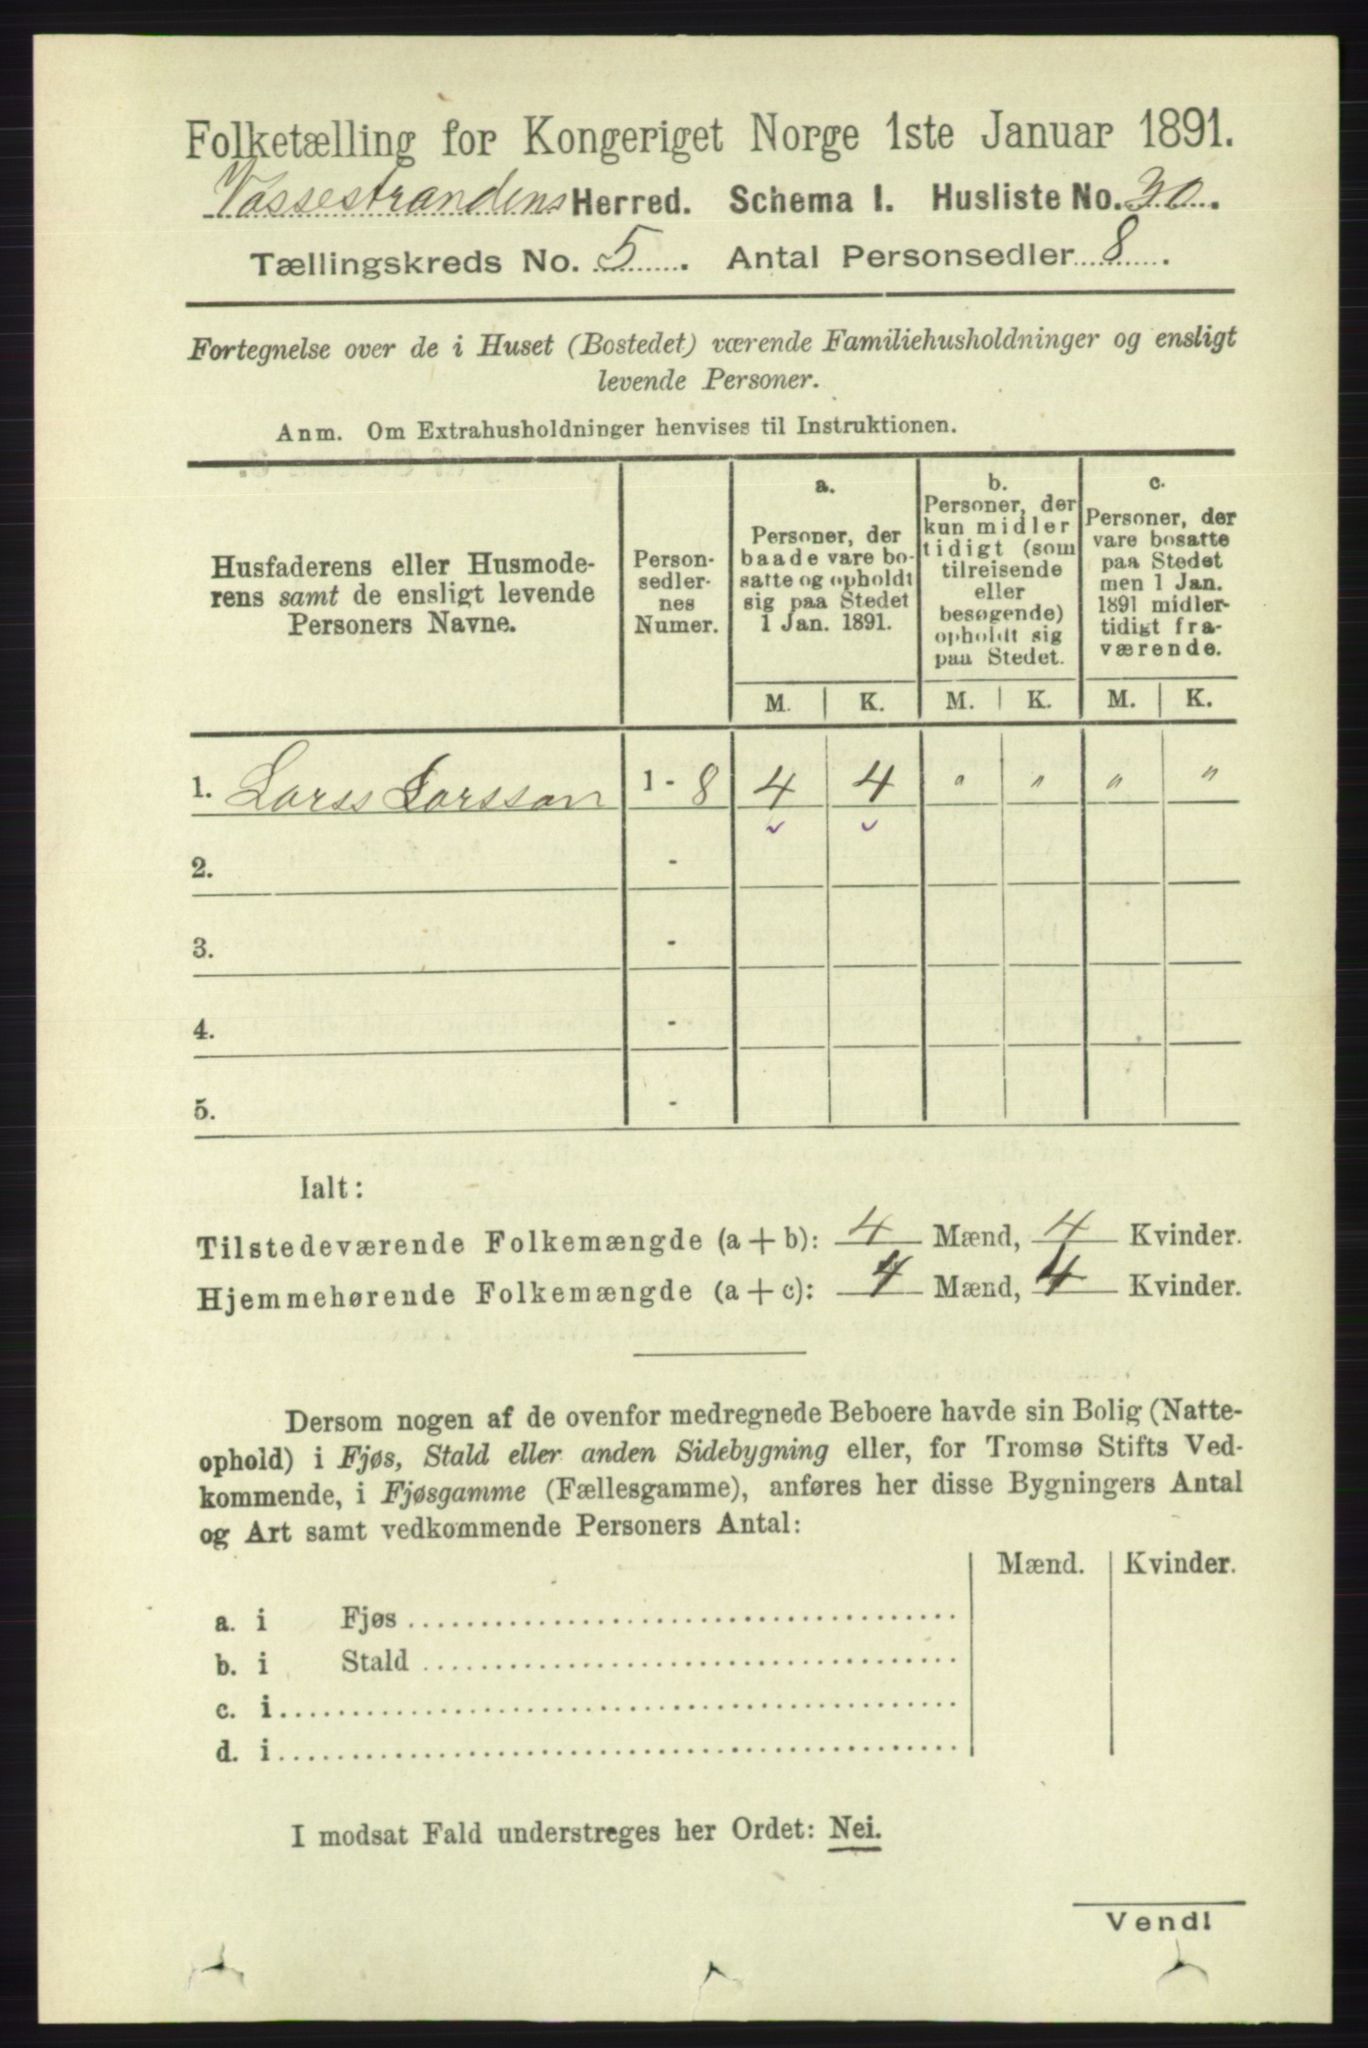 Folketælling for Kongeriget Norge 1ste Januar 1891.
Vossestrandens Herred. Schema I. Husliste No. 30.
Tællingskreds No. 5. Antal Personsedler 8.
Fortegnelse over de i Huset (Bostedet) værende Familiehusholdninger og ensligt
levende Personer.
Anm. Om Extrahusholdninger henvises til Instruktionen.
Husfaderens eller Husmode-
rens samt de ensligt levende
Personers Navne.
Person-
sedler-
nes
Numer.
a.
Personer, der
baade vare bo-
satte og opholdt
sig paa Stedet
1 Jan. 1891.
b.
Personer, der
kun midler
tidigt (som
tilreisende
eller
besøgende)
opholdt sig
paa Stedet.
c.
Personer, der
vare bosatte
paa Stedet
men 1 Jan.
1891 midler-
tidigt fra-
værende.
M. K. M. K. M. K.
1. Lars Larsson 1 - 8 4 4 " " " "
2. -
3. -
4. -
5. -
Ialt:
Tilstedeværende Folkemængde (a + b): 4 Mænd, 4 Kvinder.
Hjemmehørende Folkemængde (a + c): 4 Mænd, 4 Kvinder.
Dersom nogen af de ovenfor medregnede Beboere havde sin Bolig (Natte-
ophold) i Fjøs, Stald eller anden Sidebygning eller, for Tromsø Stifts Ved-
kommende, i Fjøsgamme (Fællesgamme), anføres her disse Bygningers Antal
og Art samt vedkommende Personers Antal:
Mænd. Kvinder.
a. i Fjøs
b. i Stald
c. i
d. i
I modsat Fald understreges her Ordet: Nei.
Vend!